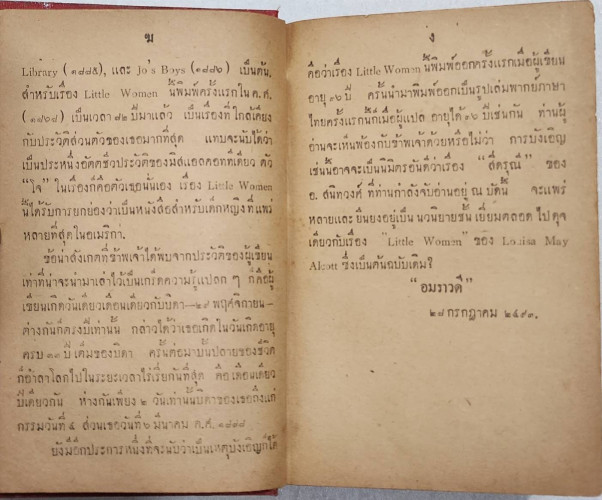 ฆ
Library (๑๘๘๕), และ Jo's Boys (๑๘๘๖) เป็นต้น.
สำหรับเรื่อง Little Women นั้นพิมพ์ครั้งแรกในค.ศ.
(๑๘๖๘) เป็นเวลา ๘๒ ปีมาแล้ว เป็นเรื่องที่ใกล้เคียง
กับประวัติส่วนตัวของเธอมากที่สุด แทบจะนับได้ว่า
เป็นประหนึ่งอัตตชีวประวัติของมิสแอลคอทที่เดียว ตัว
“โจ” ในเรื่องก็คือตัวเธอนั่นเอง เรื่อง Little Women
นี้ได้รับการยกย่องว่าเป็นหนังสือสำหรับเด็กหญิงที่แพร่
หลายที่สุดในอเมริกา.
ข้อน่าสังเกตที่ข้าพเจ้าได้พบจากประวัติของผู้เขียน
เท่าที่น่าจะนำมาเล่าไว้เป็นเกร็ดความรู้แปลก ๆ ก็คือผู้
เขียนเกิดวันเดียวเดือนเดียวกับบิดา—๒๙ พฤศจิกายน—
ต่างกันก็ตรงปีเท่านั้น กล่าวได้ว่าเธอเกิดในวันเกิดอายุ
ครบ ๓๓ ปี เต็มของบิดา ครั้นต่อมาบั้นปลายของชีวิต
ก็อำลาโลกไปในระยะเวลาไร่เรี่ยกันที่สุด คือเดือนเดียว
ปีเดียวกัน ห่างกันเพียง ๒ วันเท่านั้นบิดาของเธอถึงแก่
กรรมวันที่ ๔ ส่วนเธอวันที่ ๖ มีนาคม ค.ศ. ๑๘๘๘
ยังมีอีกประการหนึ่งที่จะนับว่าเป็นเหตุบังเอิญก็ได้
ง
คือว่าเรื่อง Little Women นี้พิมพ์ออกครั้งแรกเมื่อผู้เขียน
อายุ ๓๖ ปี ครั้นนำมาพิมพ์ออกเป็นรูปเล่มพากย์ภาษา
ไทยครั้งแรกนี้ก็เมื่อผู้แปล อายุได้ ๓๖ ปีเช่นกัน ท่านผู้
อ่านจะเห็นพ้องกับข้าพเจ้าด้วยหรือไม่ว่า การบังเอิญ
เช่นนี้อาจจะเป็นนิมิตรอันดีว่าเรื่อง “สี่ดรุณี” ของ
อ. สนิทวงศ์ ที่ท่านกำลังจับอ่านอยู่ ณ บัดนี้ จะแพร่
หลายและยืนยงอยู่เป็น นวนิยายชั้นเยี่ยมตลอดไปดุจ
เดียวกับเรื่อง “Little Women” ของ Louisa May
Alcott ซึ่งเป็นต้นฉบับเดิม?
“อมราวดี”
๒๘ กรกฎาคม ๒๔๙๓.